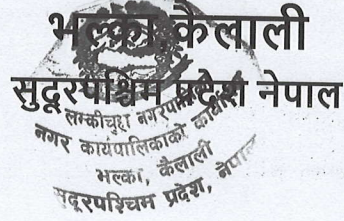 भल्का, कैलाली
सुदूरपश्चिम प्रदेश नेपाल
लम्कीचुहा नगरपालिका
नगर कार्यपालिकाको कार्यालय
भल्का, कैलाली
सुदूरपश्चिम प्रदेश, नेपाल